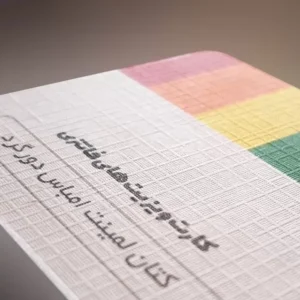 کارت ویزیت های فانتزی
کتان لمینت امباس دورگرد